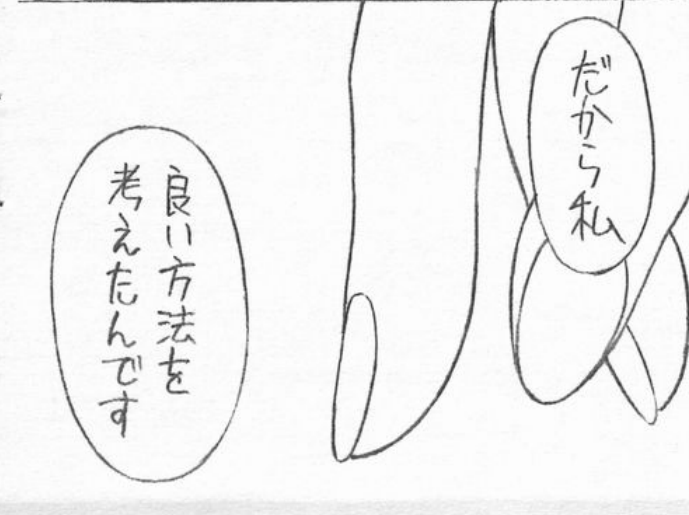 だから私
良い方法を
考えたんです